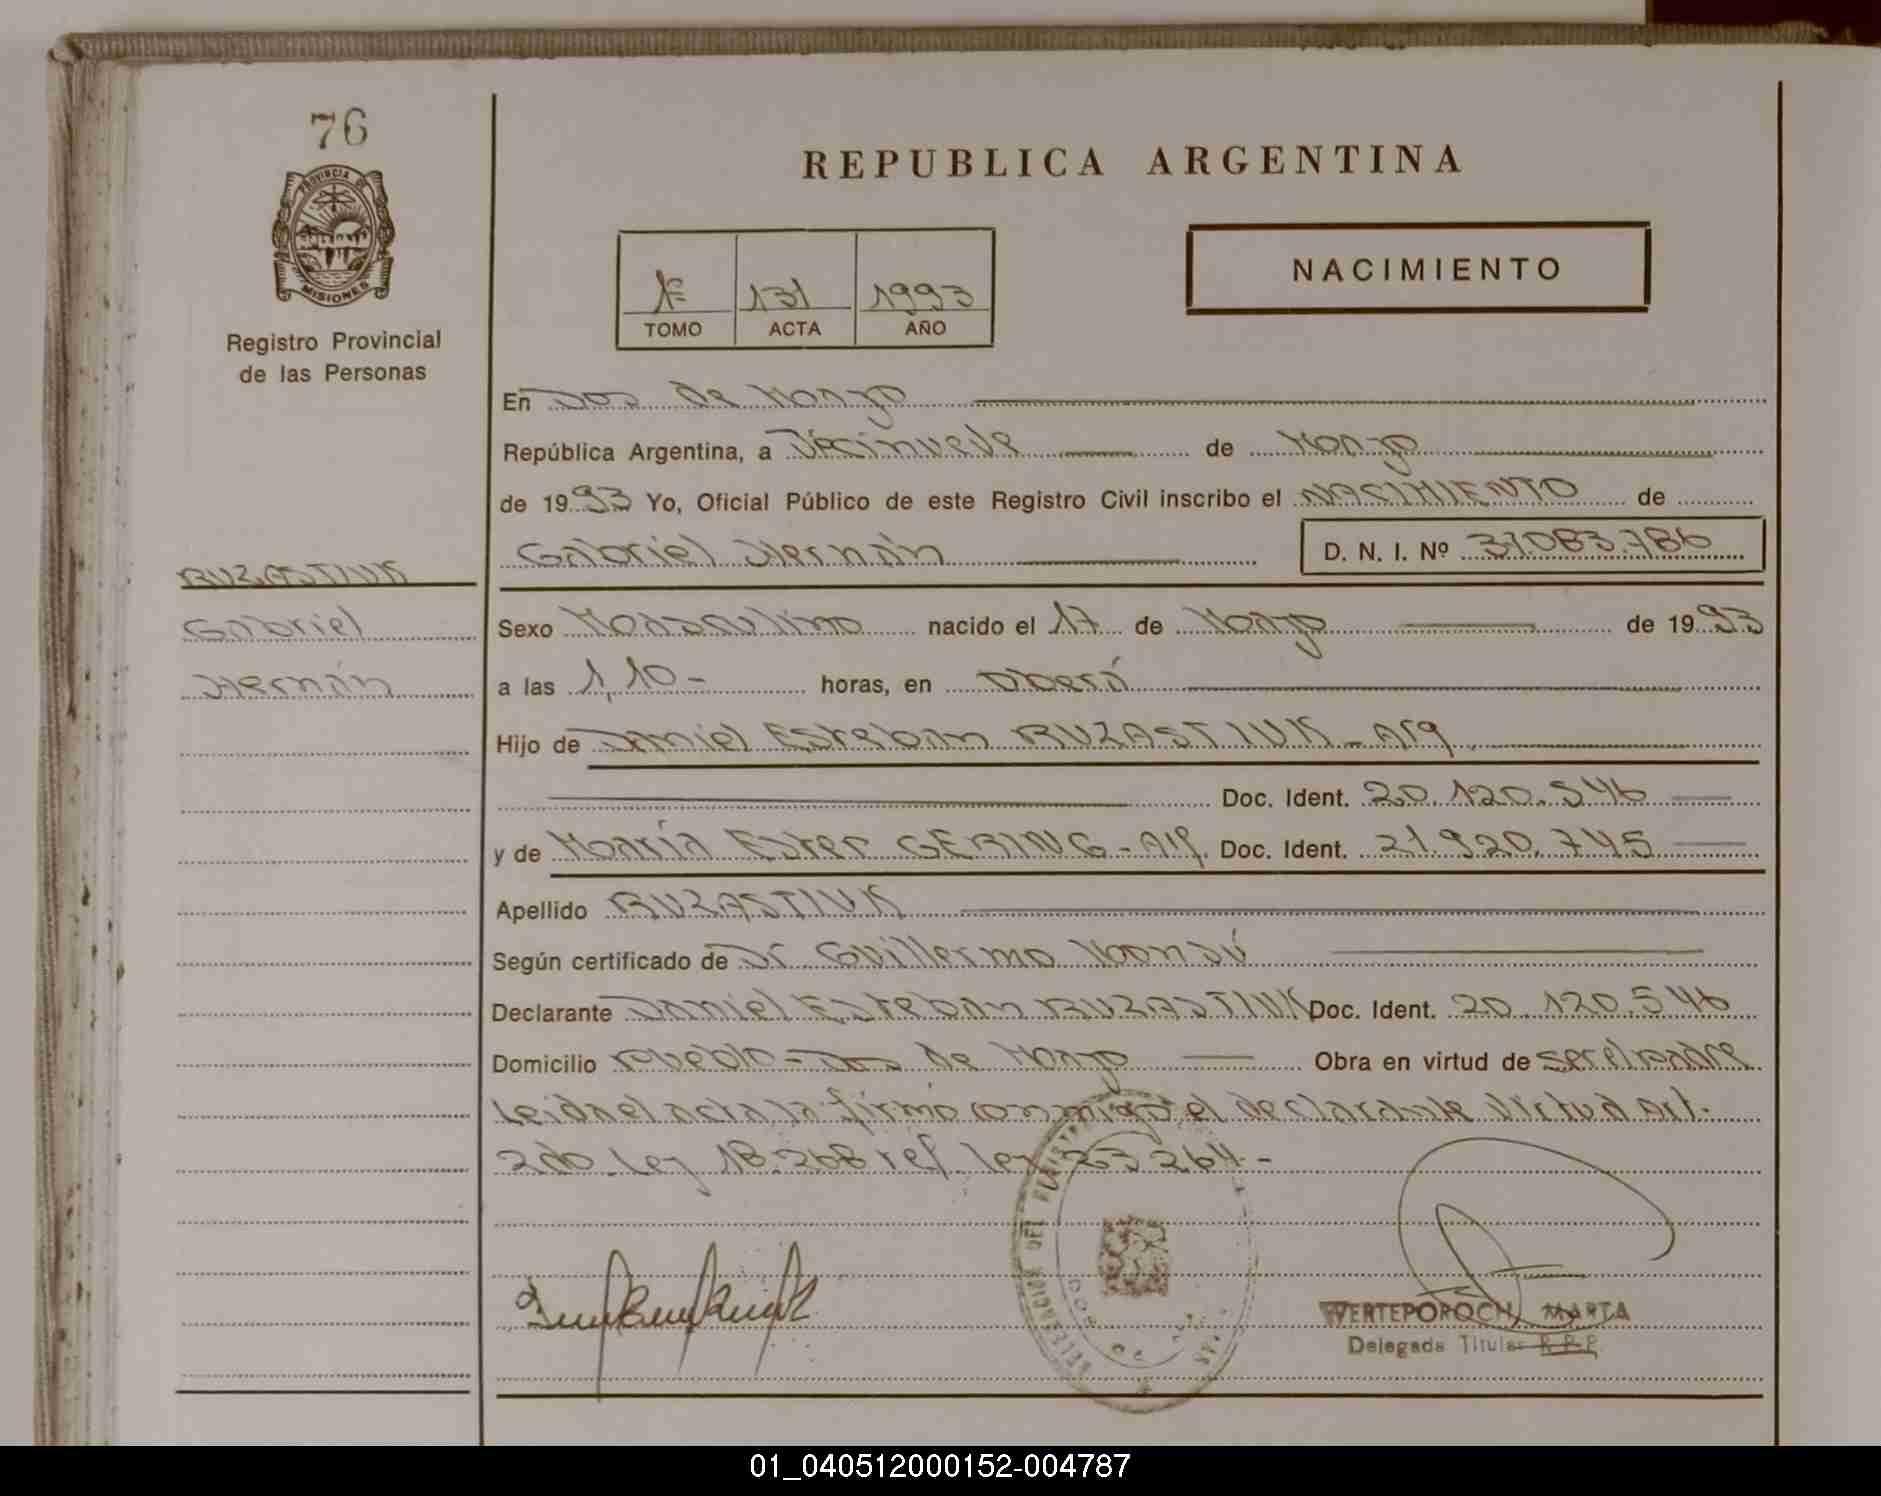 76
PROVINCIA DE
MISIONES
Registro Provincial
de las Personas
REPUBLICA ARGENTINA
NACIMIENTO
1º 131 1993
TOMO ACTA AÑO
En Dos de Marzo
República Argentina, a Diecinueve de Marzo
de 1993 Yo, Oficial Público de este Registro Civil inscribo el NACIMIENTO de
Gabriel Hernán D. N. I. Nº 37.083.786
RUZASTIUK
Gabriel
Hernán
Sexo Masculino nacido el 17 de Marzo de 1993
a las 1,10- horas, en Oberá
Hijo de Daniel Esteban RUZASTIUK - Arg.
Doc. Ident. 20.120.546
y de María Ester GERING - Arg. Doc. Ident. 21.920.745
Apellido RUZASTIUK
Según certificado de Dr Guillermo
Declarante Daniel Esteban RUZASTIUK Doc. Ident. 20.120.546
Domicilio Pueblo - Dos de Marzo Obra en virtud de ser el padre
Leida el acta la firmó conmigo el declarante Virtud Art.
2do. Ley 18.268 ref. Ley 23.264.-
DELEGACION DEL REGISTRO
WERTEPOROCH, MARTA
Delegada Titular R.P.P.
01_040512000152-004787